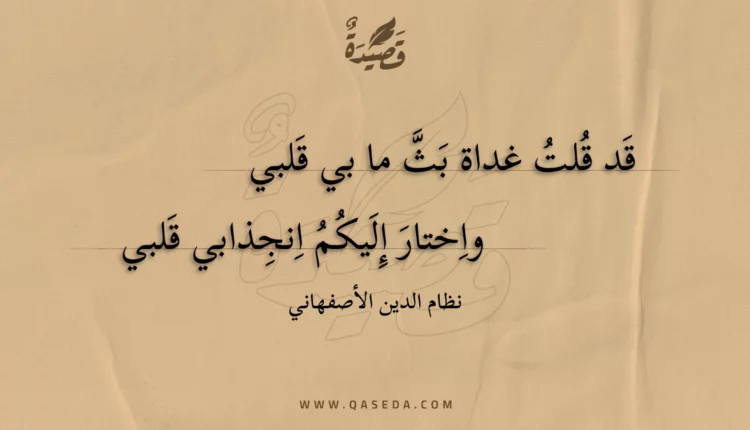 قَصِيدَةٌ
قَد قُلتُ غداة بَثَّ ما بي قَلبي
واِختارَ إِلَيكُمُ اِنجِذابي قَلبي
نظام الدين الأصفهاني
WWW.QASEDA.COM